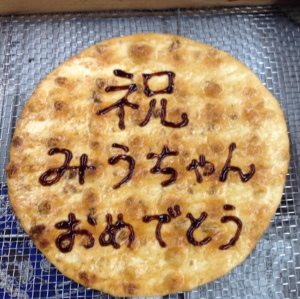 祝
みうちゃん
おめでとう